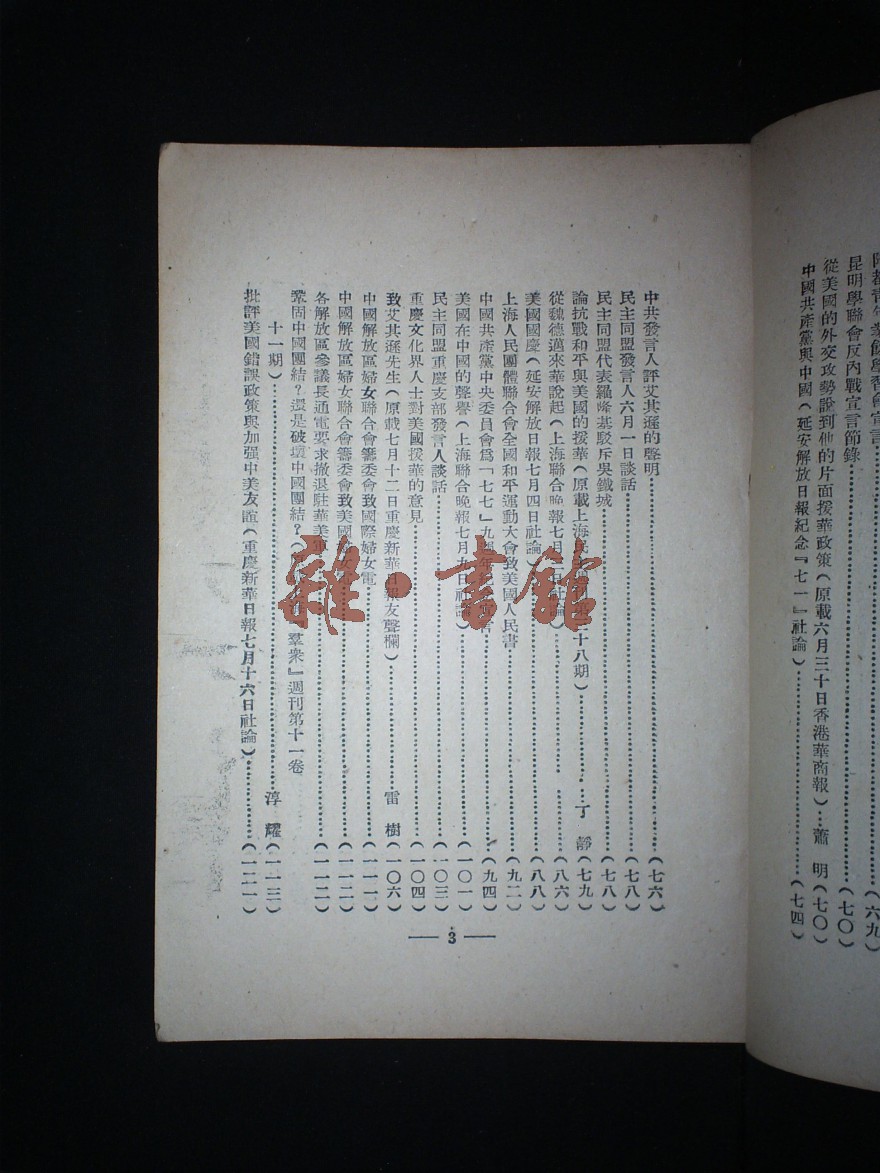 昆明學聯會反內戰宣言節錄……(七〇)
從美國的外交攻勢說到他的片面援華政策(原載六月三十日香港華商報)…蕭 明(七〇)
中國共產黨與中國(延安解放日報紀念『七一』社論)……(七四)
中共發言人評艾其遜的聲明……(七六)
民主同盟發言人六月一日談話……(七八)
民主同盟代表羅隆基駁斥吳鐵城……(七八)
論抗戰和平與美國的援華(原載上海民主十八期)……丁 靜(七九)
從魏德邁來華說起(上海聯合晚報七月日社論)……(八六)
美國國慶(延安解放日報七月四日社論)……(八八)
上海人民團體聯合會全國和平運動大會致美國人民書……(九二)
中國共產黨中央委員會爲「七七」九年言……(九四)
美國在中國的聲譽(上海聯合晚報七月日社論)……(一〇一)
民主同盟重慶支部發言人談話……(一〇三)
重慶文化界人士對美國援華的意見……(一〇四)
致艾其遜先生(原載七月十二日重慶新華日報友聲欄)……雷 樹(一〇六)
中國解放區婦女聯合會籌委會致國際婦女電……(一一一)
中國解放區婦女聯合會籌委會致美國婦女電……(一一二)
各解放區參議長通電要求撤退駐華美軍……(一一二)
鞏固中國團結?還是破壞中國團結?(『羣衆』週刊第十一卷
十一期)……淳 耀(一一三)
批評美國錯誤政策與加强中美友誼(重慶新華日報七月十六日社論)……(一二一)
— 3 —
雜·書館